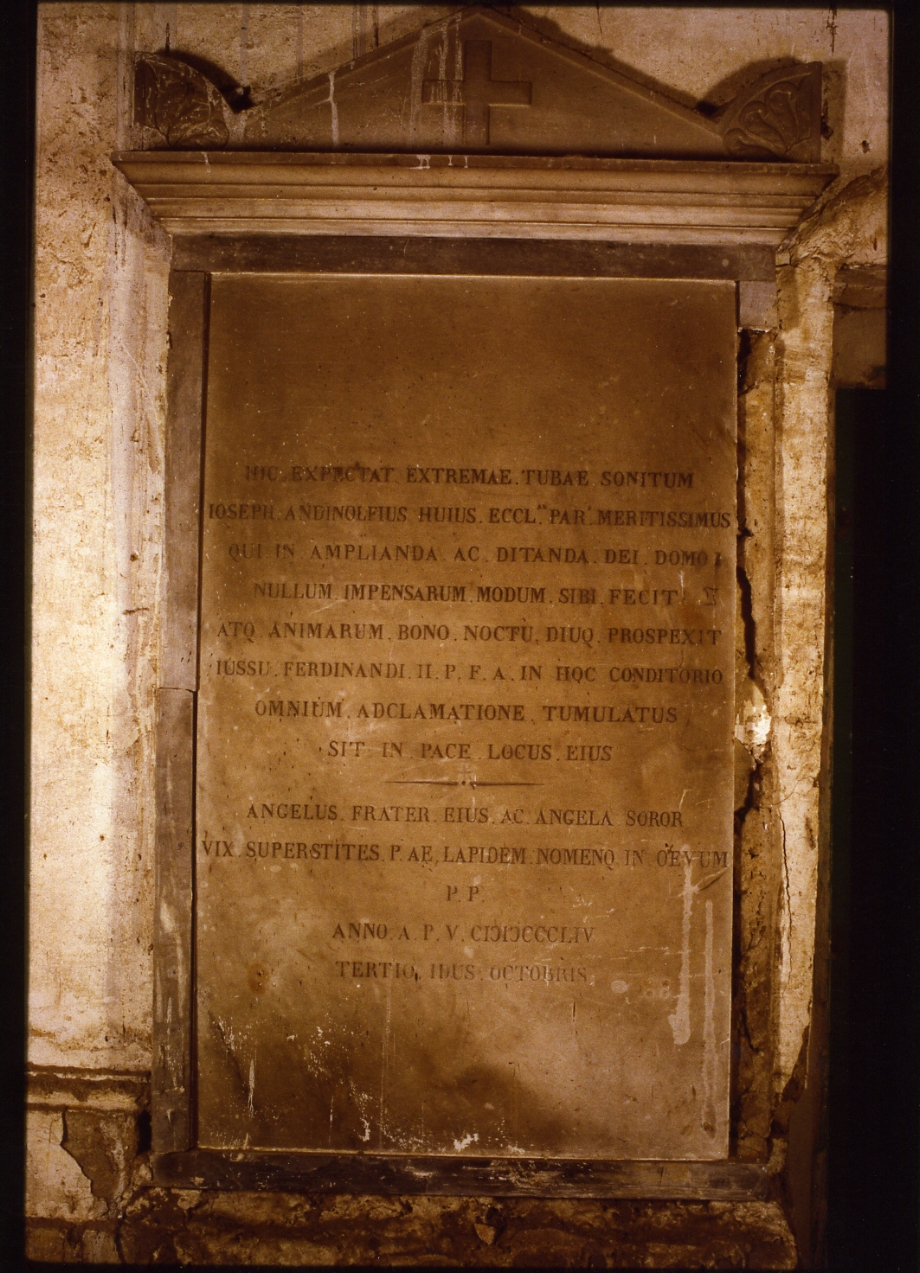 HIC . EXPECTAT . EXTREMAE . TUBAE . SONITUM
IOSEPH . ANDINOLFIUS . HUIUS . ECCL. PAR. MERITISSIMUS
QUI . IN . AMPLIANDA . AC . DITANDA . DEI . DOMO
NULLUM . IMPENSARUM . MODUM . SIBI . FECIT
ATQ . ANIMARUM . BONO . NOCTU . DIUQ . PROSPEXIT
IUSSU . FERDINANDI . II . P . F . A . IN . HOC . CONDITORIO
OMNIUM . ADCLAMATIONE . TUMULATUS
SIT . IN . PACE . LOCUS . EIUS
ANGELUS . FRATER . EIUS . AC . ANGELA . SOROR
VIX . SUPERSTITES . P . AE . LAPIDEM . NOMENQ . IN . OEVUM
P . P .
ANNO . A . P . V . CIƆIƆCCCLIV
TERTIO . IDUS . OCTOBRIS